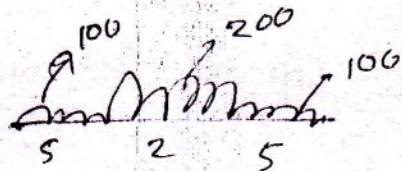 100
200
100
5 2 5